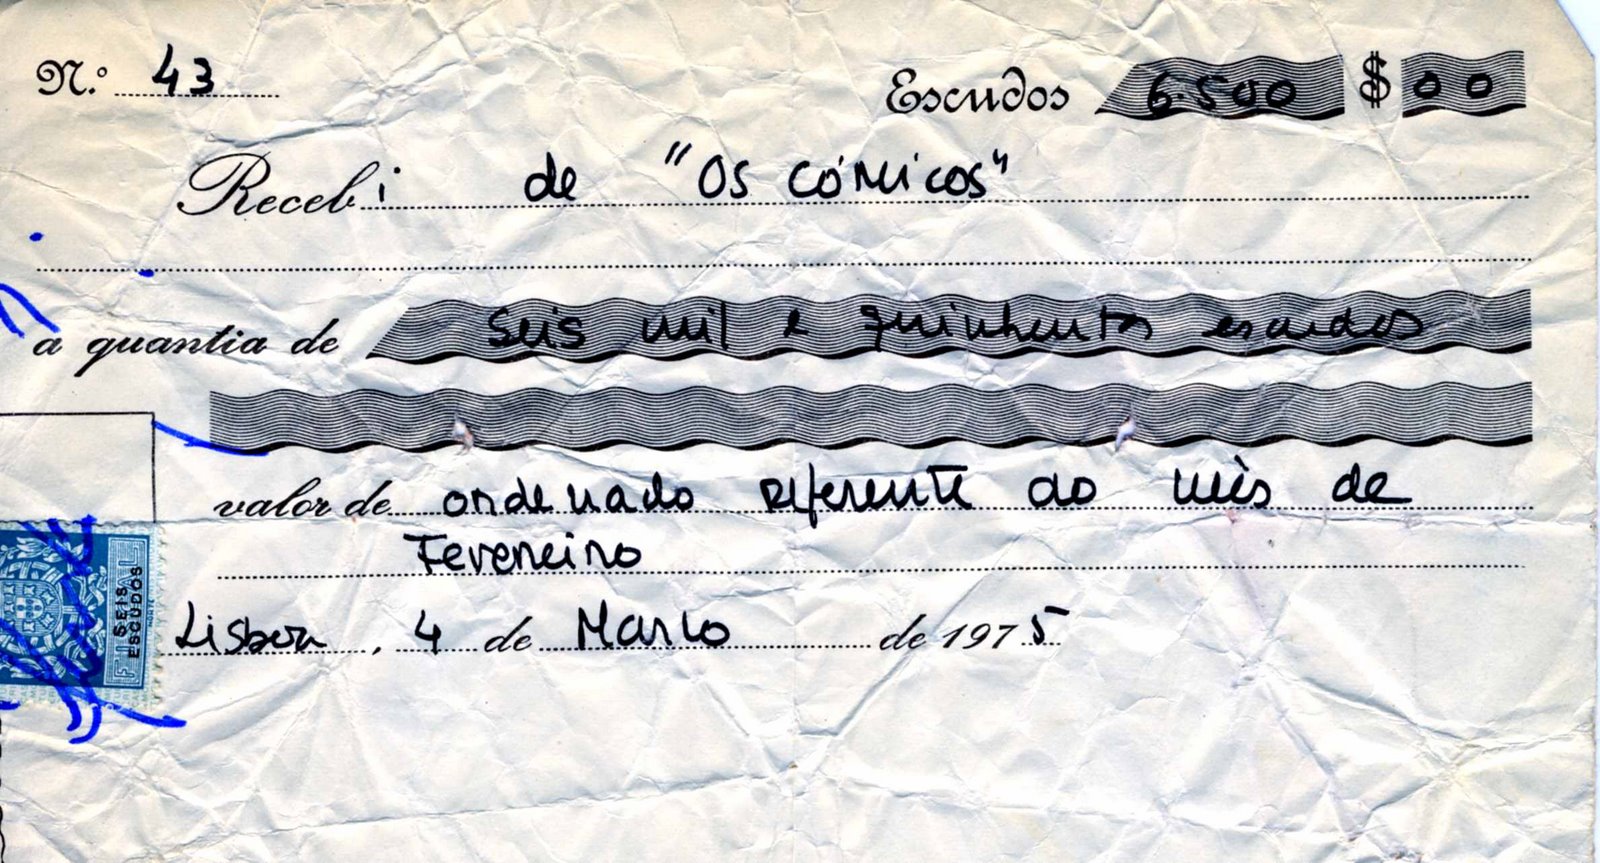 N.º 43 Escudos 6.500 $ 00
Recebi de "Os Cómicos"
a quantia de seis mil e quinhentos escudos
valor de ordenado referente ao mês de
Fevereiro
Lisboa, 4 de Março de 1975
SEIS
ESCUDOS
FISCAL